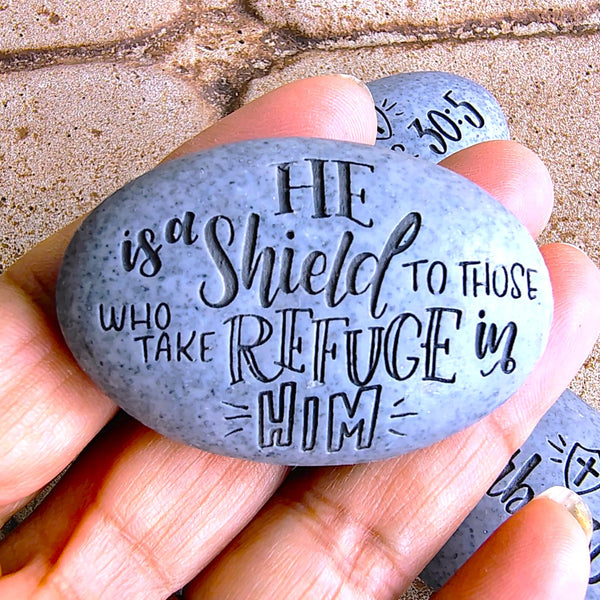 HE
is a Shield TO THOSE
WHO TAKE REFUGE in
HIM
30:5